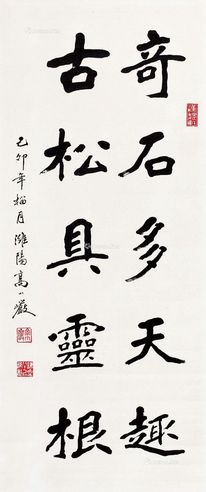 奇石多天趣
古松具靈根
己卯年秋月濰陽高小巖